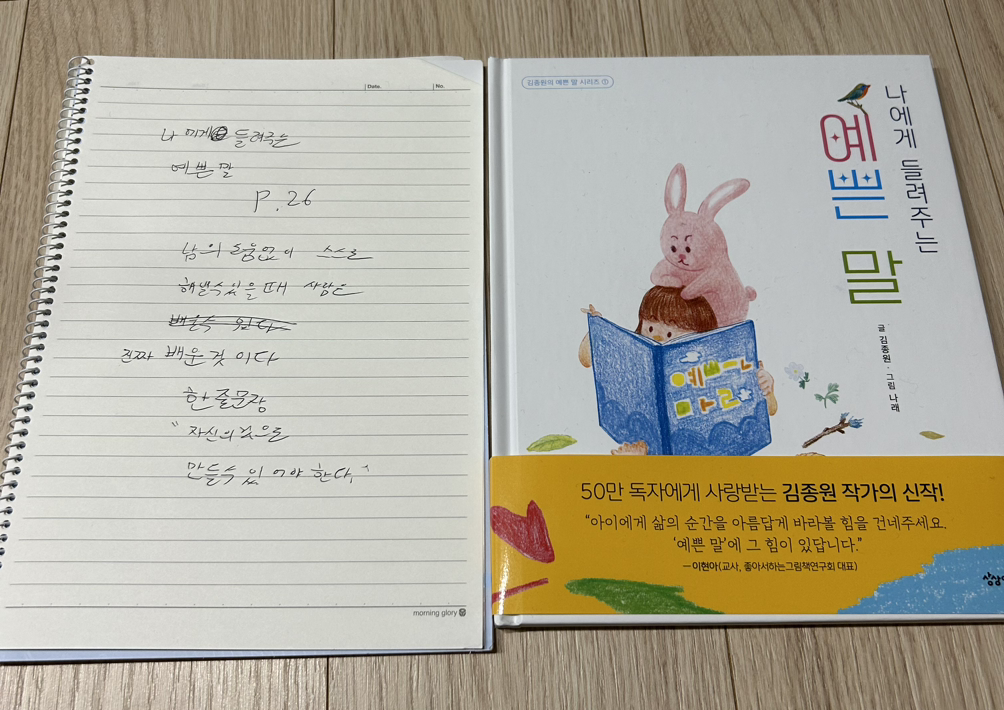 Date.
No.
나에게 들려주는
예쁜 말
P. 26
남의 도움없이 스스로
해낼수있을때 사람은
배울수 있다
진짜 배운것이다
한줄문장
"자신의것으로
만들수있어야한다."
morning glory
김종원의 예쁜 말 시리즈
나에게 들려주는
예쁜 말
글 김종원 · 그림 나래
예쁘ㅡㄴ
마ㄹ
50만 독자에게 사랑받는 김종원 작가의 신작!
“아이에게 삶의 순간을 아름답게 바라볼 힘을 건네주세요.
‘예쁜 말’에 그 힘이 있답니다.”
—이현아(교사, 좋아서하는그림책연구회 대표)